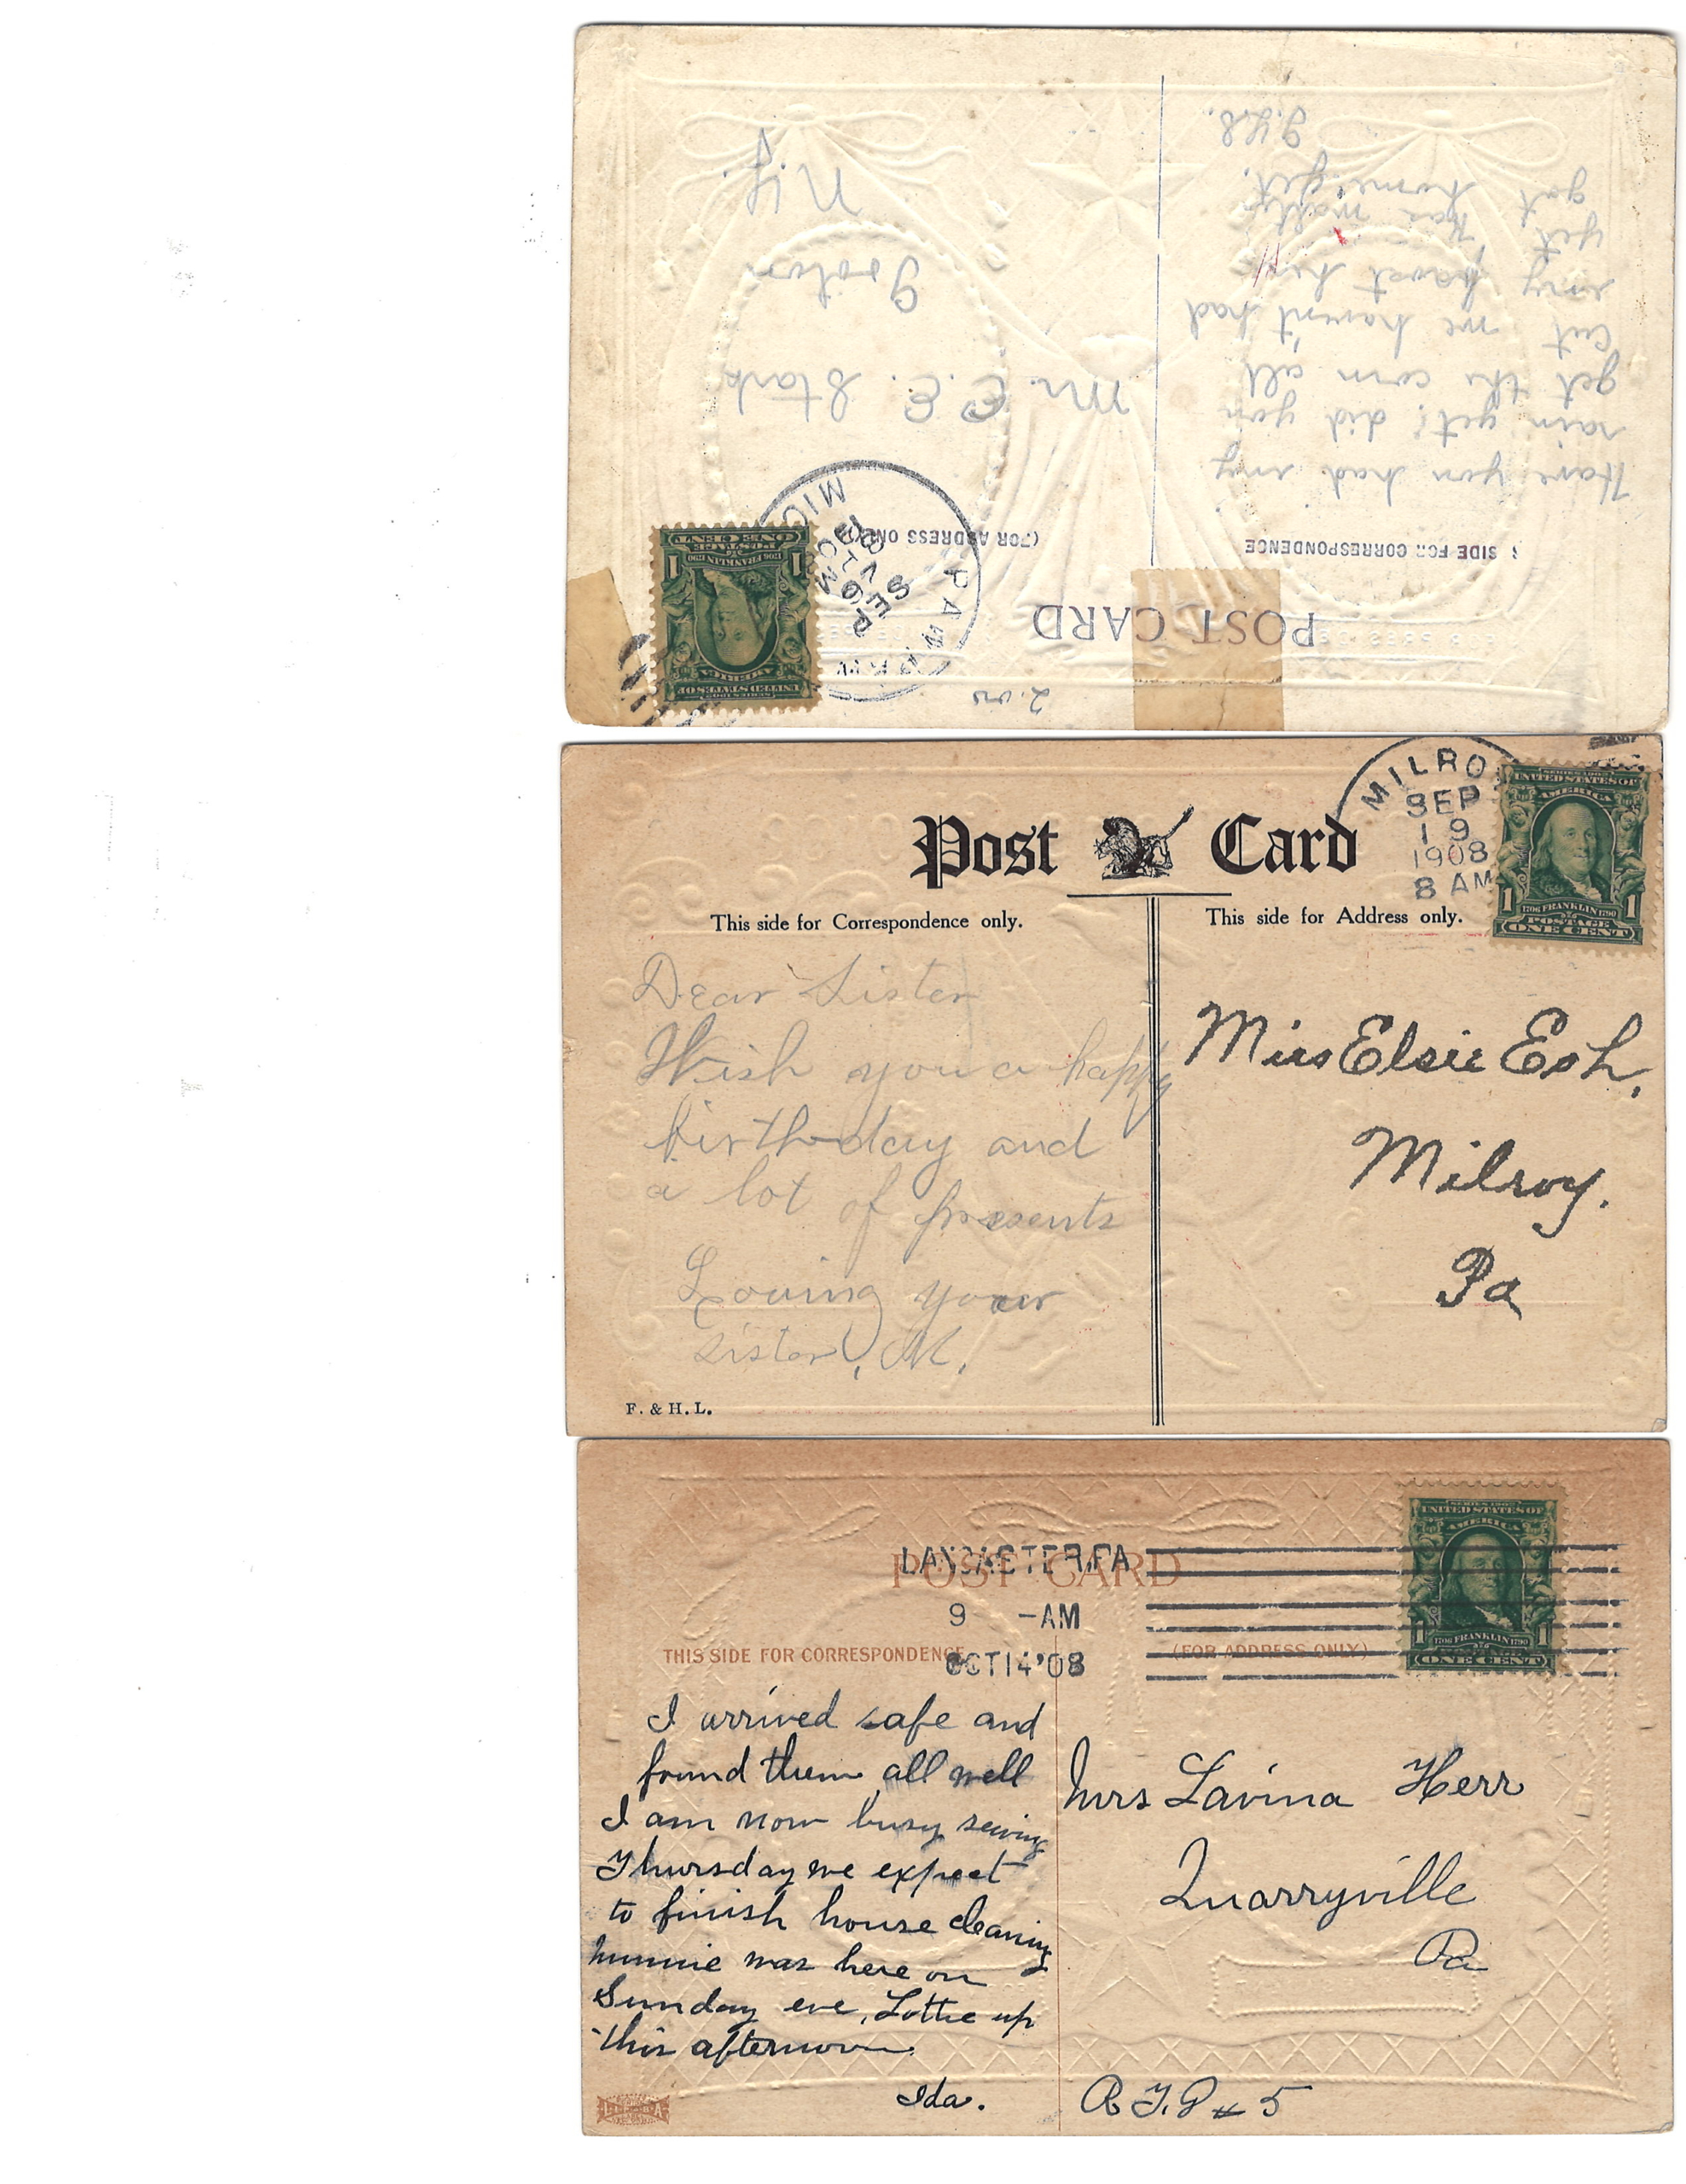 POST CARD
SIDE FOR CORRESPONDENCE
(FOR ADDRESS ONLY)
SEP
MICH
UNITED STATES OF
AMERICA
1706 FRANKLIN 1790
1 1
POSTAGE
ONE CENT
Have you had any
rain yet! did you
get the corn all
cut we haven't had
any
yet
got home yet.
Mr. E. E. Stark
N.Y.
Post Card
MILRO
SEP
19
1908
8 AM
SERIES 1902
UNITED STATES OF
AMERICA
1 1
1706 FRANKLIN 1790
POSTAGE
ONE CENT
This side for Correspondence only.
This side for Address only.
Dear Sister
Wish you a happy
birthday and
a lot of presents
Loving your
sister, M.
Miss Elsie Esh.
Milroy.
Pa
F. & H. L.
POST CARD
LANCASTER, PA
9 -AM
OCT 14 '08
SERIES 1902
UNITED STATES OF
AMERICA
1 1
1706 FRANKLIN 1790
ONE CENT
THIS SIDE FOR CORRESPONDENCE
(FOR ADDRESS ONLY)
I arrived safe and
found them all well
I am now busy sewing
Thursday we expect
to finish house cleaning
Minnie was here on
Sunday eve, Lottie up
this afternoon.
Ida.
Mrs Lavina Herr
Quarryville
Pa
R.F.D # 5